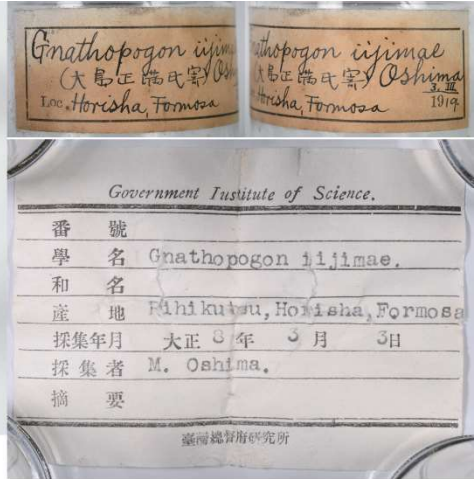 Gnathopogon iijima
(大島正滿氏寄) Osh
Loc. Horisha, Formosa
nathopogon iijimae
(大島正滿氏寄) Oshima
Horisha, Formosa
3. III
1919.
Government Institute of Science.
番 號
學 名 Gnathopogon iijimae.
和 名
產 地 Rihikutsu, Horisha, Formosa
採集年月 大正 8 年 3 月 3日
採集者 M. Oshima.
摘 要
臺灣總督府研究所